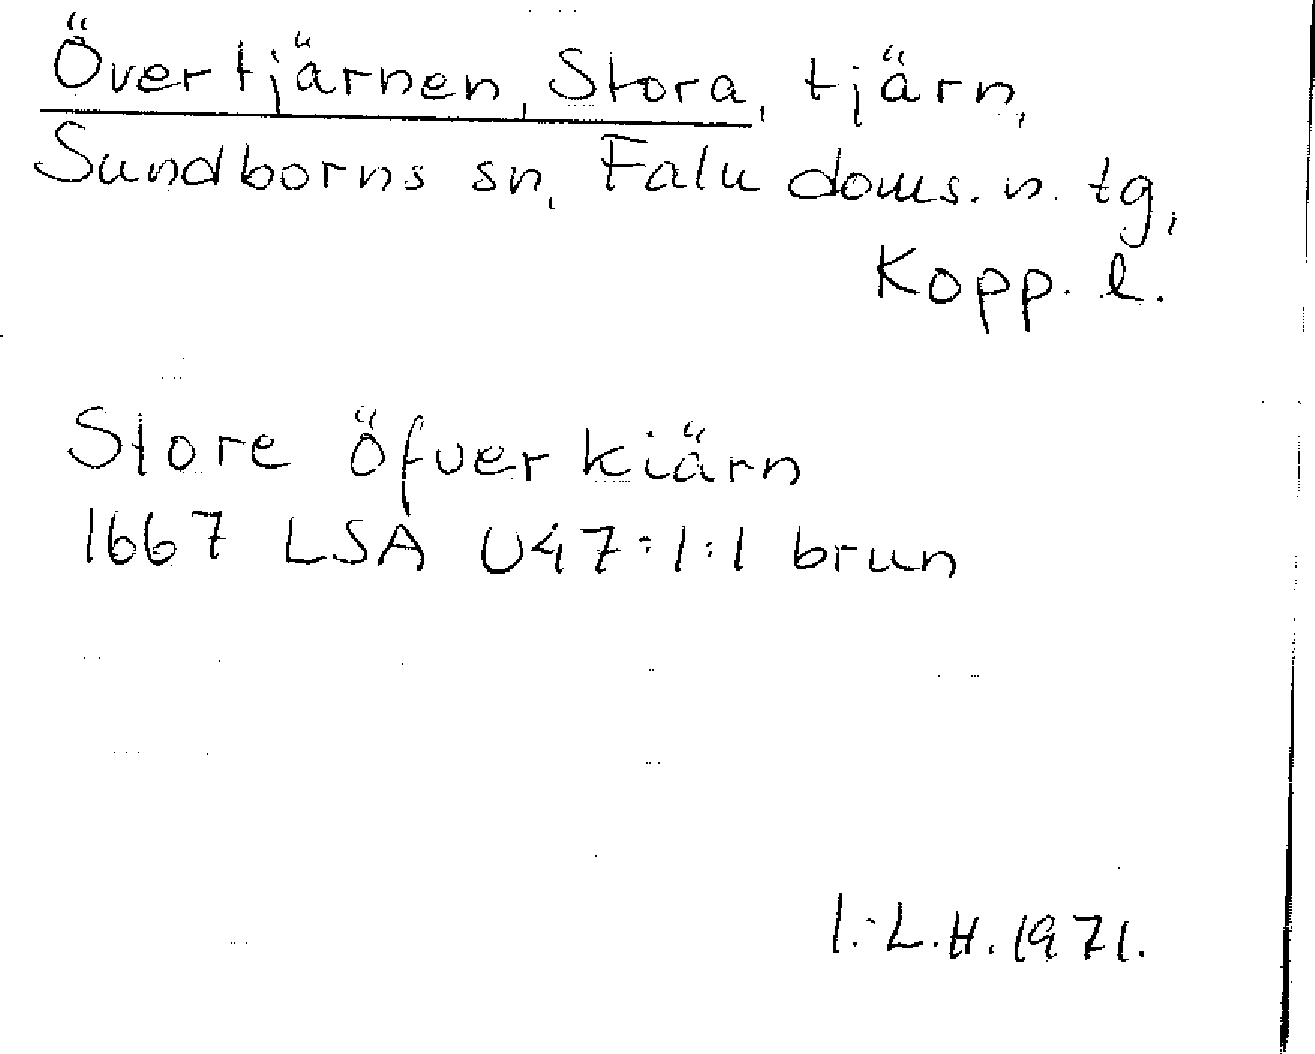 Övertjärnen, Stora, tjärn,
Sundborns sn, Falu doms. n. tg,
Kopp. l.
Store öfver kiärn
1667 LSA U47:1:1 brun
I.-L.H. 1971.